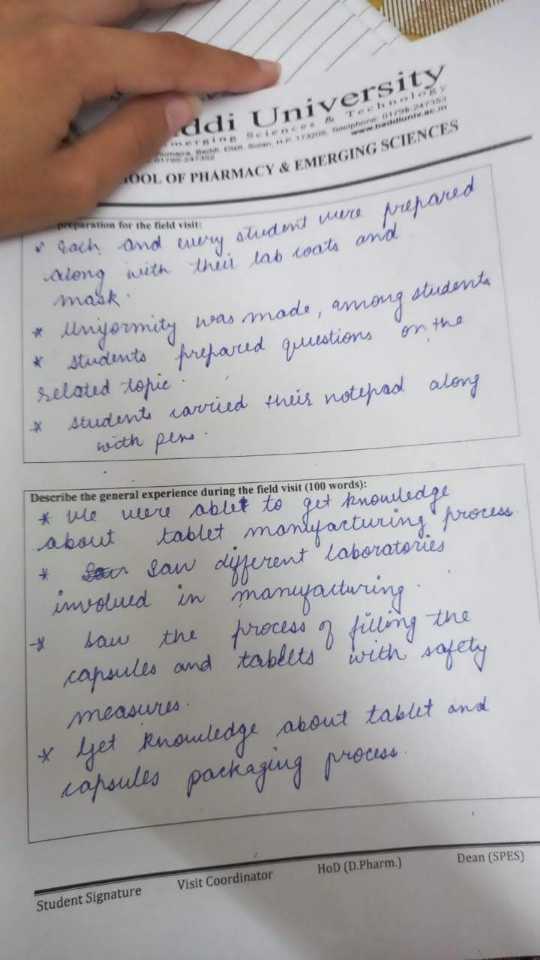 ddi University
merging Sciences & Technology
www.baddiuniv.ac.in
OOL OF PHARMACY & EMERGING SCIENCES
preparation for the field visit:
Each and every student were prepared
along with their lab coats and
mask.
* Uniformity was made, among students
* students prepared questions on the
related topic.
* students carried their notepad along
with pens.
Describe the general experience during the field visit (100 words):
* We were ablet to get knowledge
about tablet manufacturing process
* Saw different laboratories
involved in manufacturing.
* Saw the process of filling the
capsules and tablets with safety
measures.
* Get knowledge about tablet and
capsules packaging process.
Student Signature Visit Coordinator HoD (D.Pharm.) Dean (SPES)